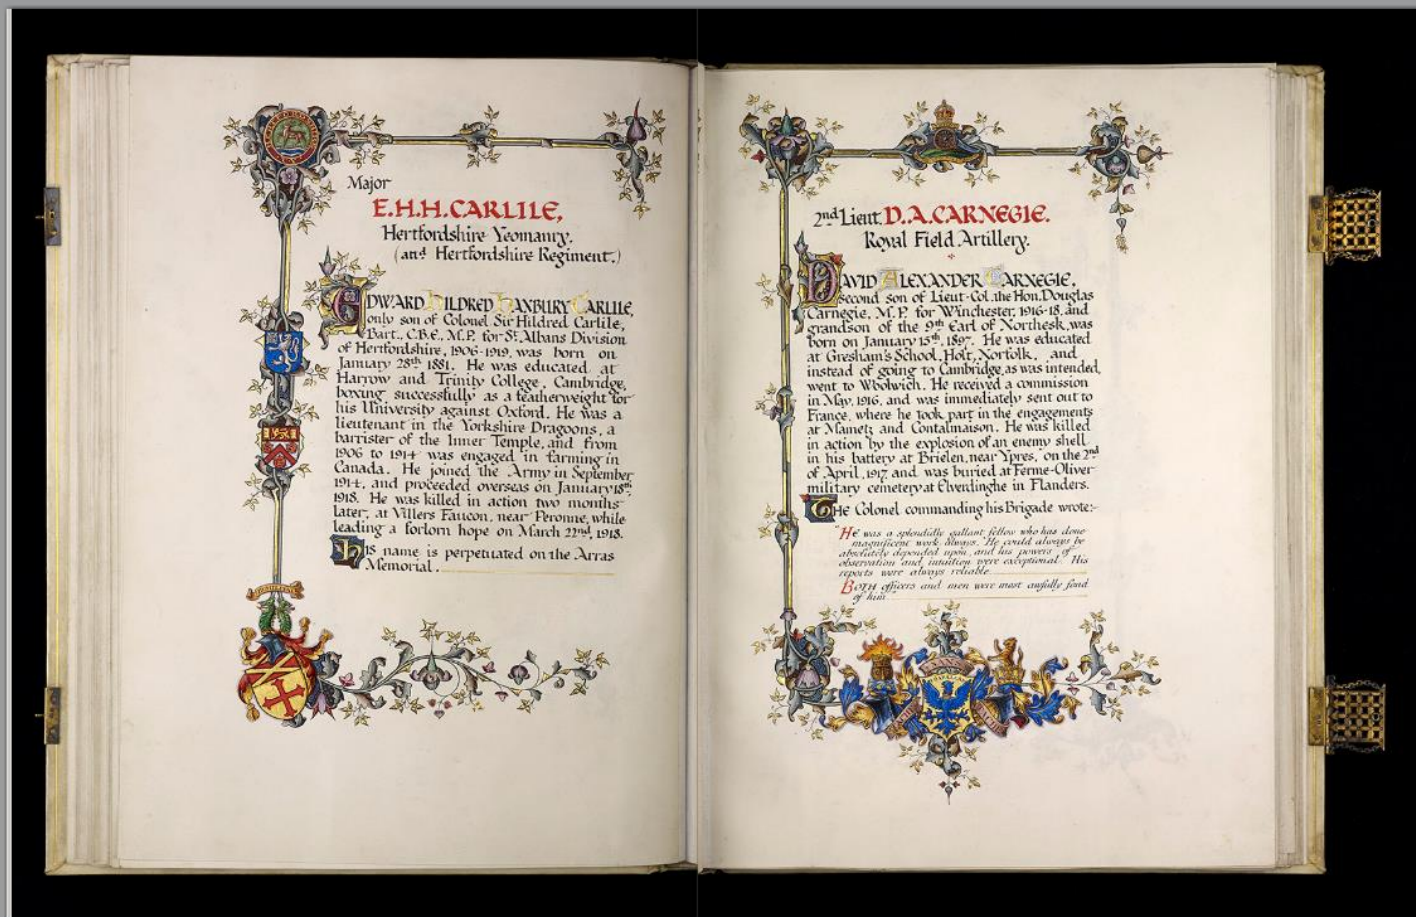 Major
E.H.H. CARLILE,
Hertfordshire Yeomanry.
(and Hertfordshire Regiment.)
EDWARD HILDRED HANBURY CARLILE,
only son of Colonel Sir Hildred Carlile,
Bart., C.B.E., M.P. for St. Albans Division
of Hertfordshire, 1906-1919, was born on
January 28th 1881. He was educated at
Harrow and Trinity College, Cambridge,
boxing successfully as a featherweight for
his University against Oxford. He was a
lieutenant in the Yorkshire Dragoons, a
barrister of the Inner Temple, and from
1906 to 1914 was engaged in farming in
Canada. He joined the Army in September
1914, and proceeded overseas on January 18th,
1918. He was killed in action two months
later, at Villers Faucon, near Peronne, while
leading a forlorn hope on March 22nd, 1918.
His name is perpetuated on the Arras
Memorial.
2nd Lieut. D.A. CARNEGIE.
Royal Field Artillery.
DAVID ALEXANDER CARNEGIE,
second son of Lieut-Col. the Hon. Douglas
Carnegie, M.P. for Winchester, 1916-18, and
grandson of the 9th Earl of Northesk, was
born on January 15th, 1897. He was educated
at Gresham's School, Holt, Norfolk, and
instead of going to Cambridge, as was intended,
went to Woolwich. He received a commission
in May, 1916, and was immediately sent out to
France, where he took part in the engagements
at Mametz and Contalmaison. He was killed
in action by the explosion of an enemy shell
in his battery at Brielen, near Ypres, on the 2nd
of April, 1917, and was buried at Ferme-Olivier
military cemetery at Elverdinghe in Flanders.
THE Colonel commanding his Brigade wrote:-
"He was a splendidly gallant fellow who has done
magnificent work always. He could always be
absolutely depended upon, and his powers of
observation and intuition were exceptional. His
reports were always reliable.
BOTH officers and men were most awfully fond
of him"